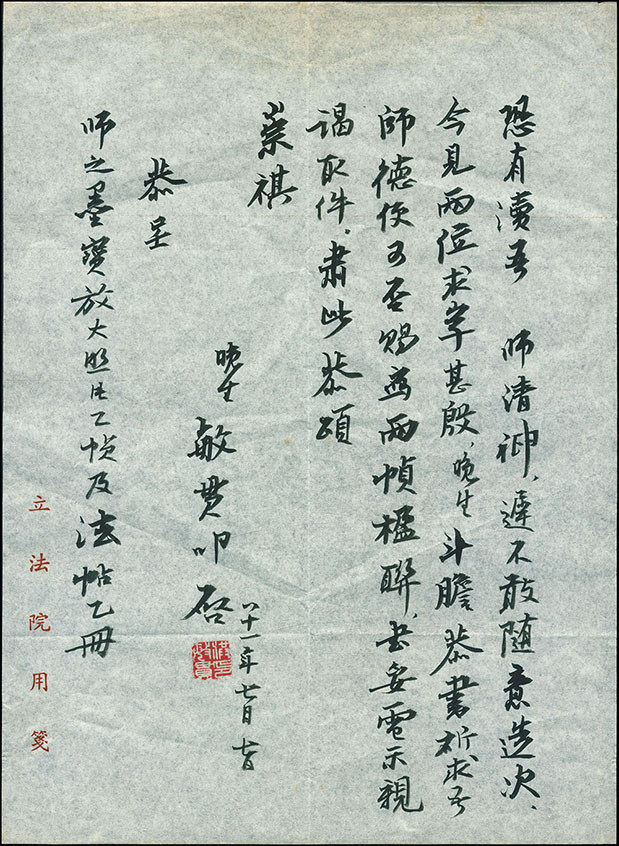 恐有瀆吾　師清神、遲不敢隨意造次、
今見兩位求字甚殷、晚生斗膽恭書祈求吾
師德便可否賜為兩幀楹聯、書妥電示親
謁取件。肅此恭頌
崇祺
晚生敏貫叩啓
八十一年七月
恭呈
師之墨寶放大照片乙幀及法帖乙冊
立法院用箋